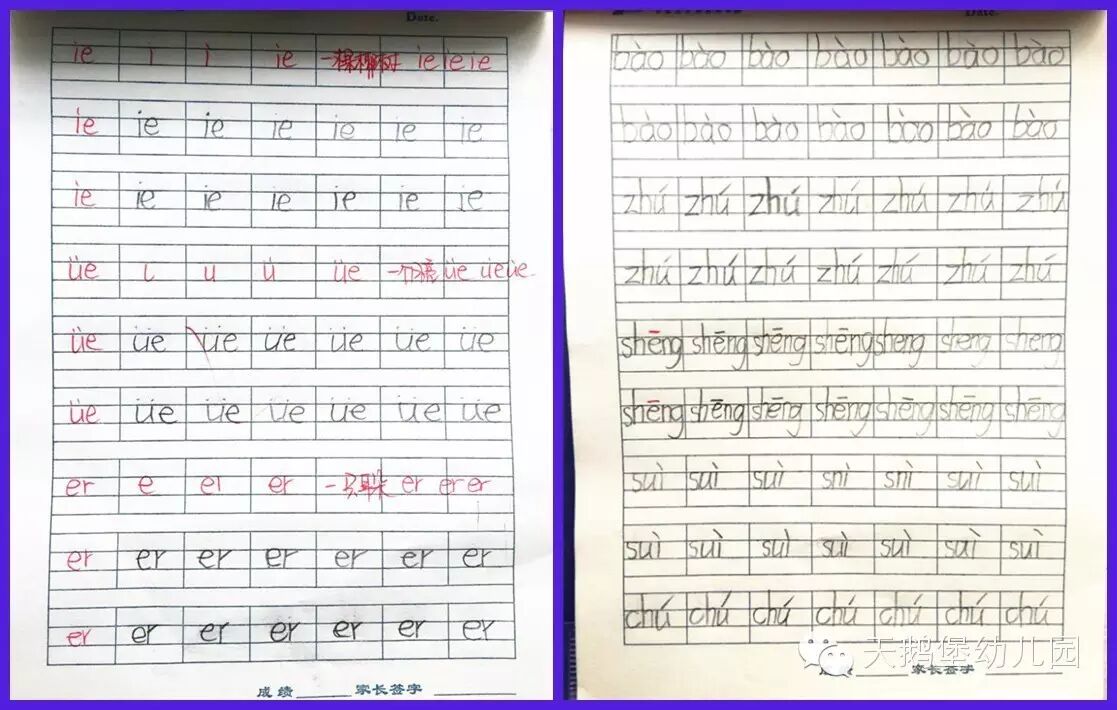 Date.
ie i i ie 一棵椰树 ie ie ie
ie ie ie ie ie ie ie
ie ie ie ie ie ie ie
üe ι u u üe 一个 üe üe üe
üe üe üe üe üe üe üe
üe üe üe üe üe üe üe
er e eı er 一只耳朵 er er er
er er er er er er er
er er er er er er er
成绩 家长签字
bào bào bào bào bào bào bào
bào bào bào bào bào bào bào
zhú zhú zhú zhú zhú zhú zhú
zhú zhú zhú zhú zhú zhú zhú
shēng shēng shēng shēng sheng sheng sheng
shēng shēng shēng shēng shēng shēng shēng
suì suì suì snì snì suì suì
suì suì suì suì suì suì suì
chú chú chú chú chú chú chú
天鹅堡幼儿园
家长签字